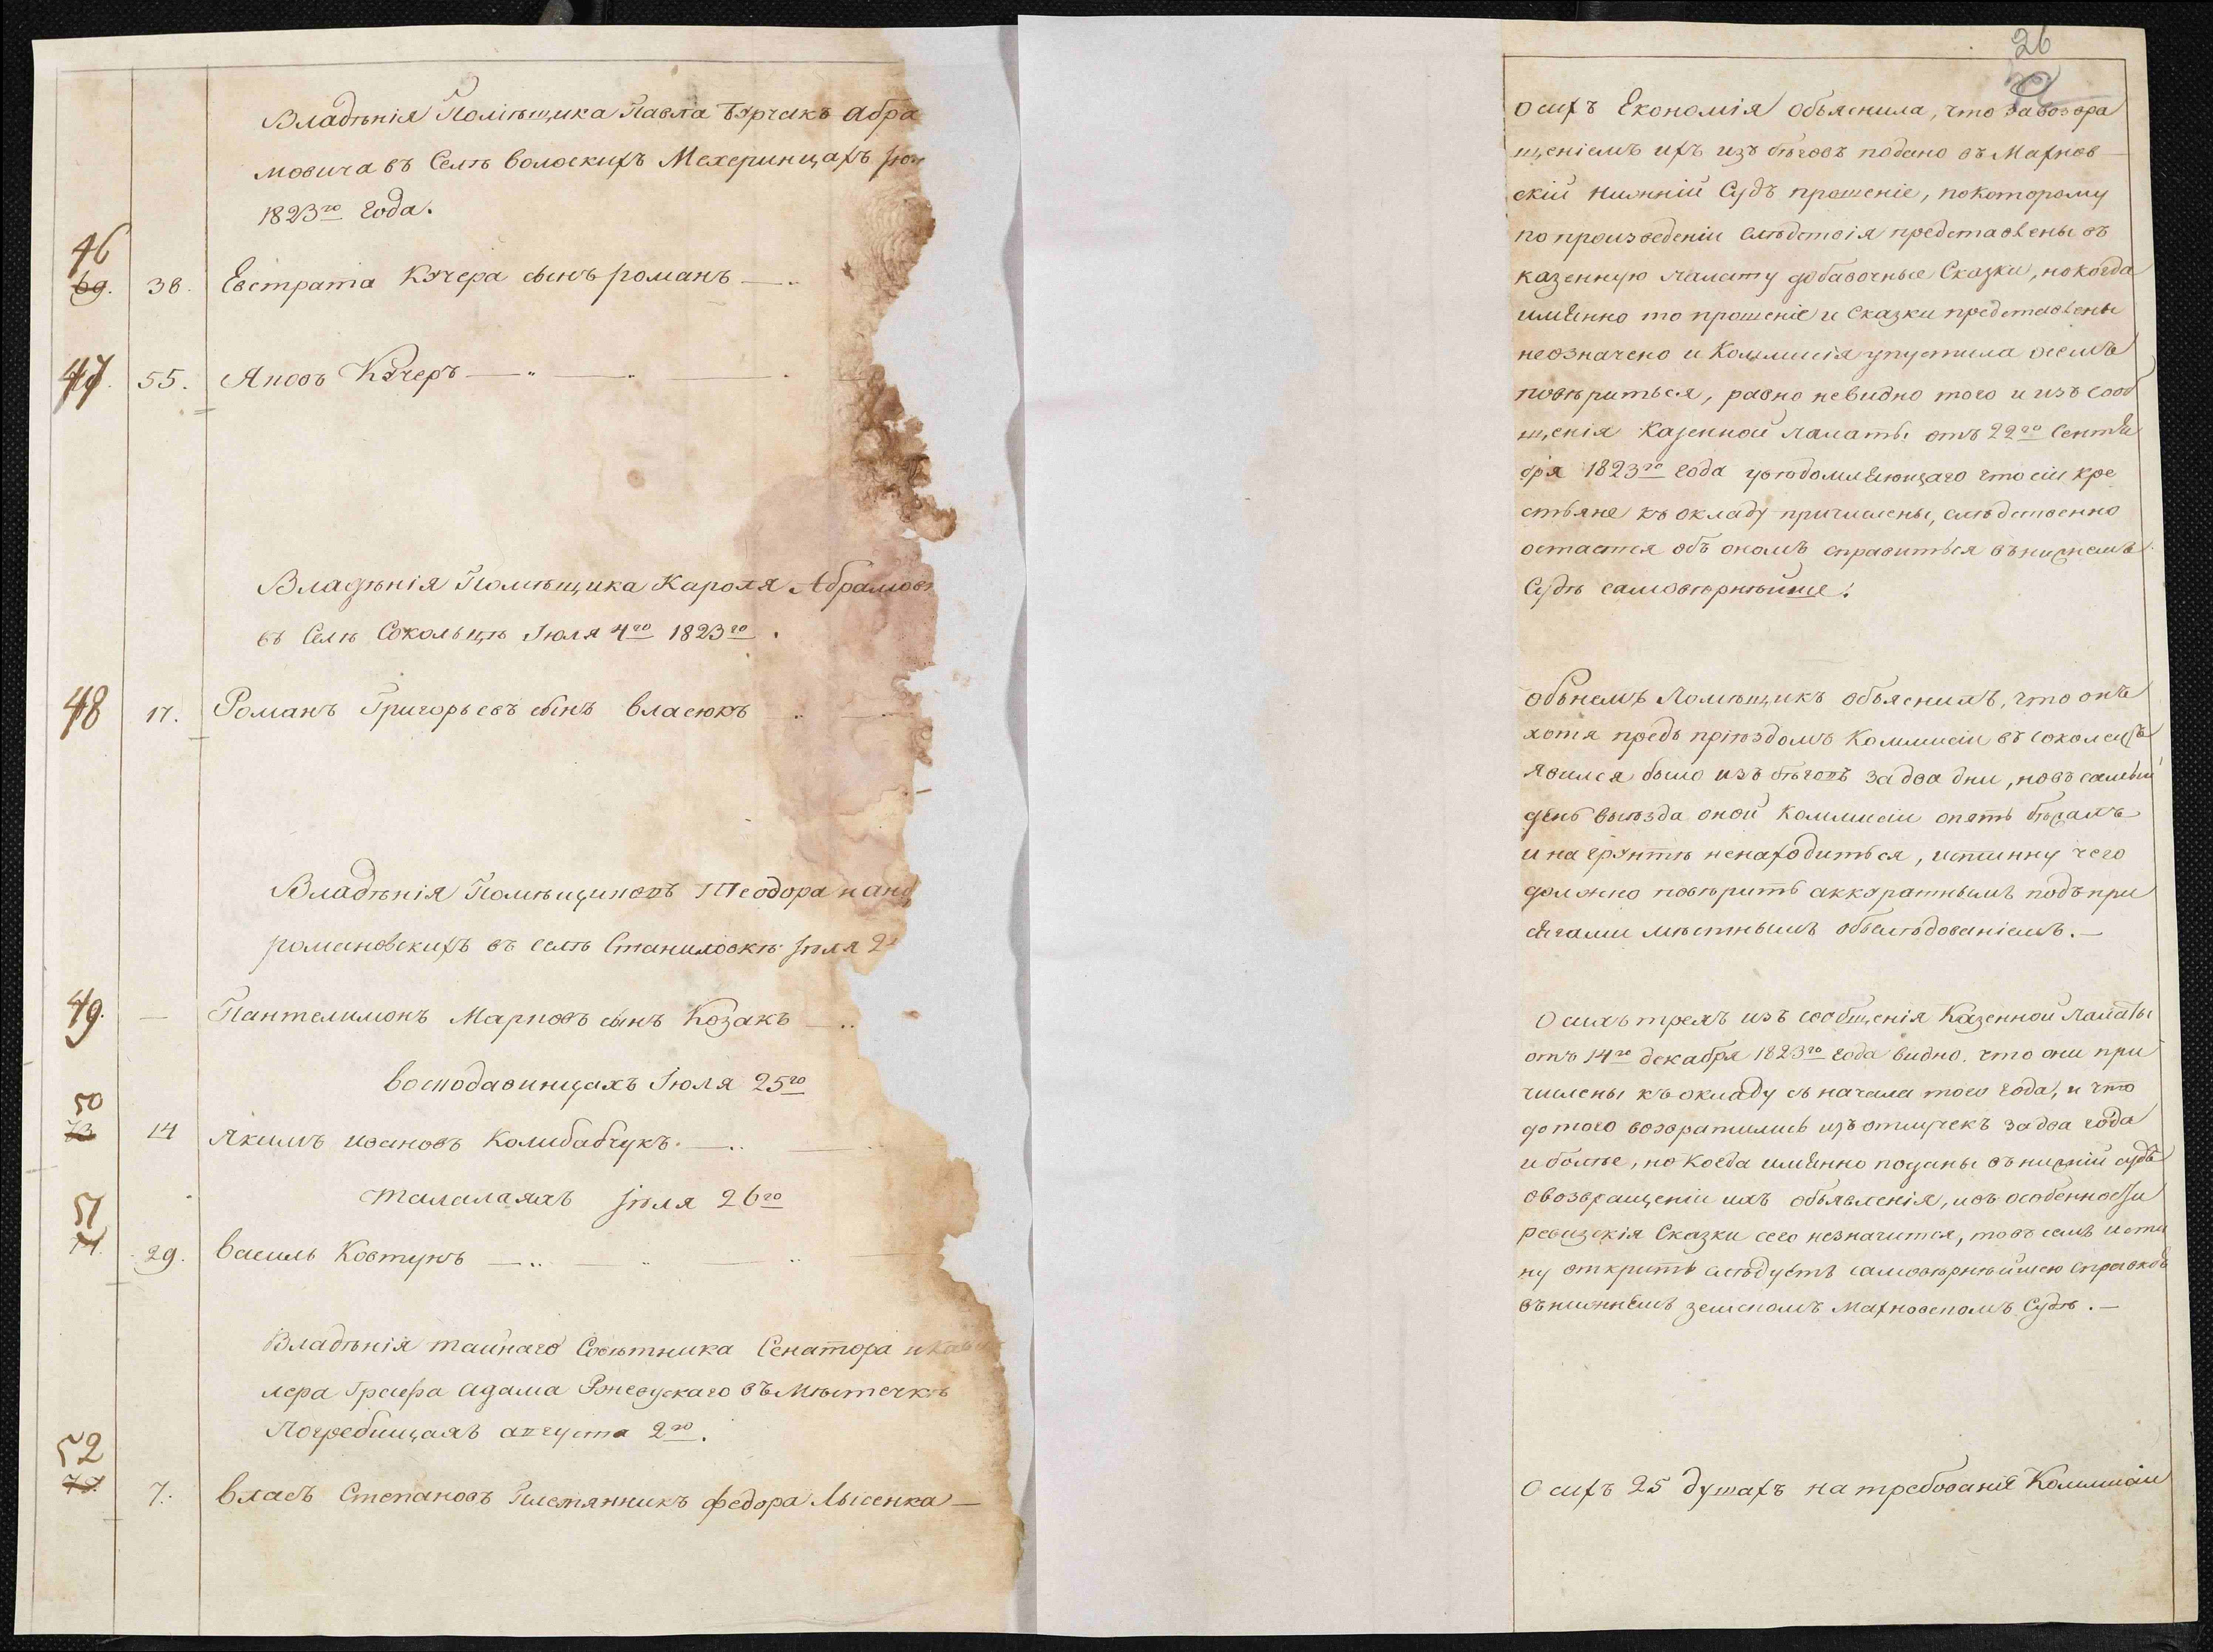 Владѣнія Помѣщика Павла Бурчакъ Абра
мовича въ Селѣ волоскихъ Мехеринцахъ
1823го Года.
46
69. 38. Евстратія Кучера сынъ романъ
47. 55. Яковъ Кучеръ
Владѣнія Помѣщика Кароля Абрамов
въ Селѣ Сокольцѣ Іюля 4го 1823го.
48 17. Романъ Григорьевъ сынъ власюкъ
Владѣнія Помѣщиковъ Теодора и
романовскихъ въ селѣ Станиловкѣ Іюля 2
49. — Пантелимонъ Марковъ сынъ Козакъ
восподавинцахъ Іюля 25го
50
73 14 Якимъ ивановъ Колибабчукъ.
талалаяхъ Іюля 26го
51
74. 29. василь Ковтунъ
Владѣнія тайнаго Совѣтника Сенатора и кава
лера Графа Адама Ржевускаго въ Мѣстечкѣ
Погребищахъ августа 2го.
52
7. власъ Степановъ Племянникъ федора Лысенка
26
О сихъ Економія объяснила, что за возвра
щеніемъ ихъ изъ бѣговъ подано въ Махнов
скій нижній Судъ прошеніе, по которому
по произведеніи слѣдствія представлены въ
казенную палату добавочные Сказки, но когда
имянно то прошеніе и сказки представлены
не означено и Коммисія упустила о семъ
повѣриться, равно невидно того и изъ сооб
щенія Казенной палаты отъ 22го Сентя
бря 1823го Года увѣдомляющаго что сіи кре
стьяне къ окладу причислены, слѣдственно
остается объ ономъ справиться въ нижнемъ
Судѣ самовѣрнѣйше.
Объ немъ Помѣщикъ объяснилъ, что онъ
хотя предъ пріѣздомъ Коммисіи въ соколецъ
явился было изъ бѣговъ за два дни, но въ самый
день выѣзда оной Коммисіи опять бѣжалъ
и на грунтѣ ненаходиться, истинну чего
должно повѣрить аккуратнымъ подъ при
сягами мѣстнымъ обслѣдованіемъ.
О сихъ трехъ изъ сообщенія Казенной Палаты
отъ 14го декабря 1823го года видно. что они при
числены къ окладу съ начала того года, и что
до того возвратились изъ отлучекъ за два года
и болѣе, но Когда имянно поданы въ нижній судъ
о возвращеніи ихъ объявленія, и въ особенности
ревизскія Сказки сего незначится, то въ семъ исти
ну открить слѣдуетъ самовѣрнѣйшею справкою
въ нижнемъ земскомъ Махновскомъ Судѣ.
О сихъ 25 душахъ на требованіе Коммисіи